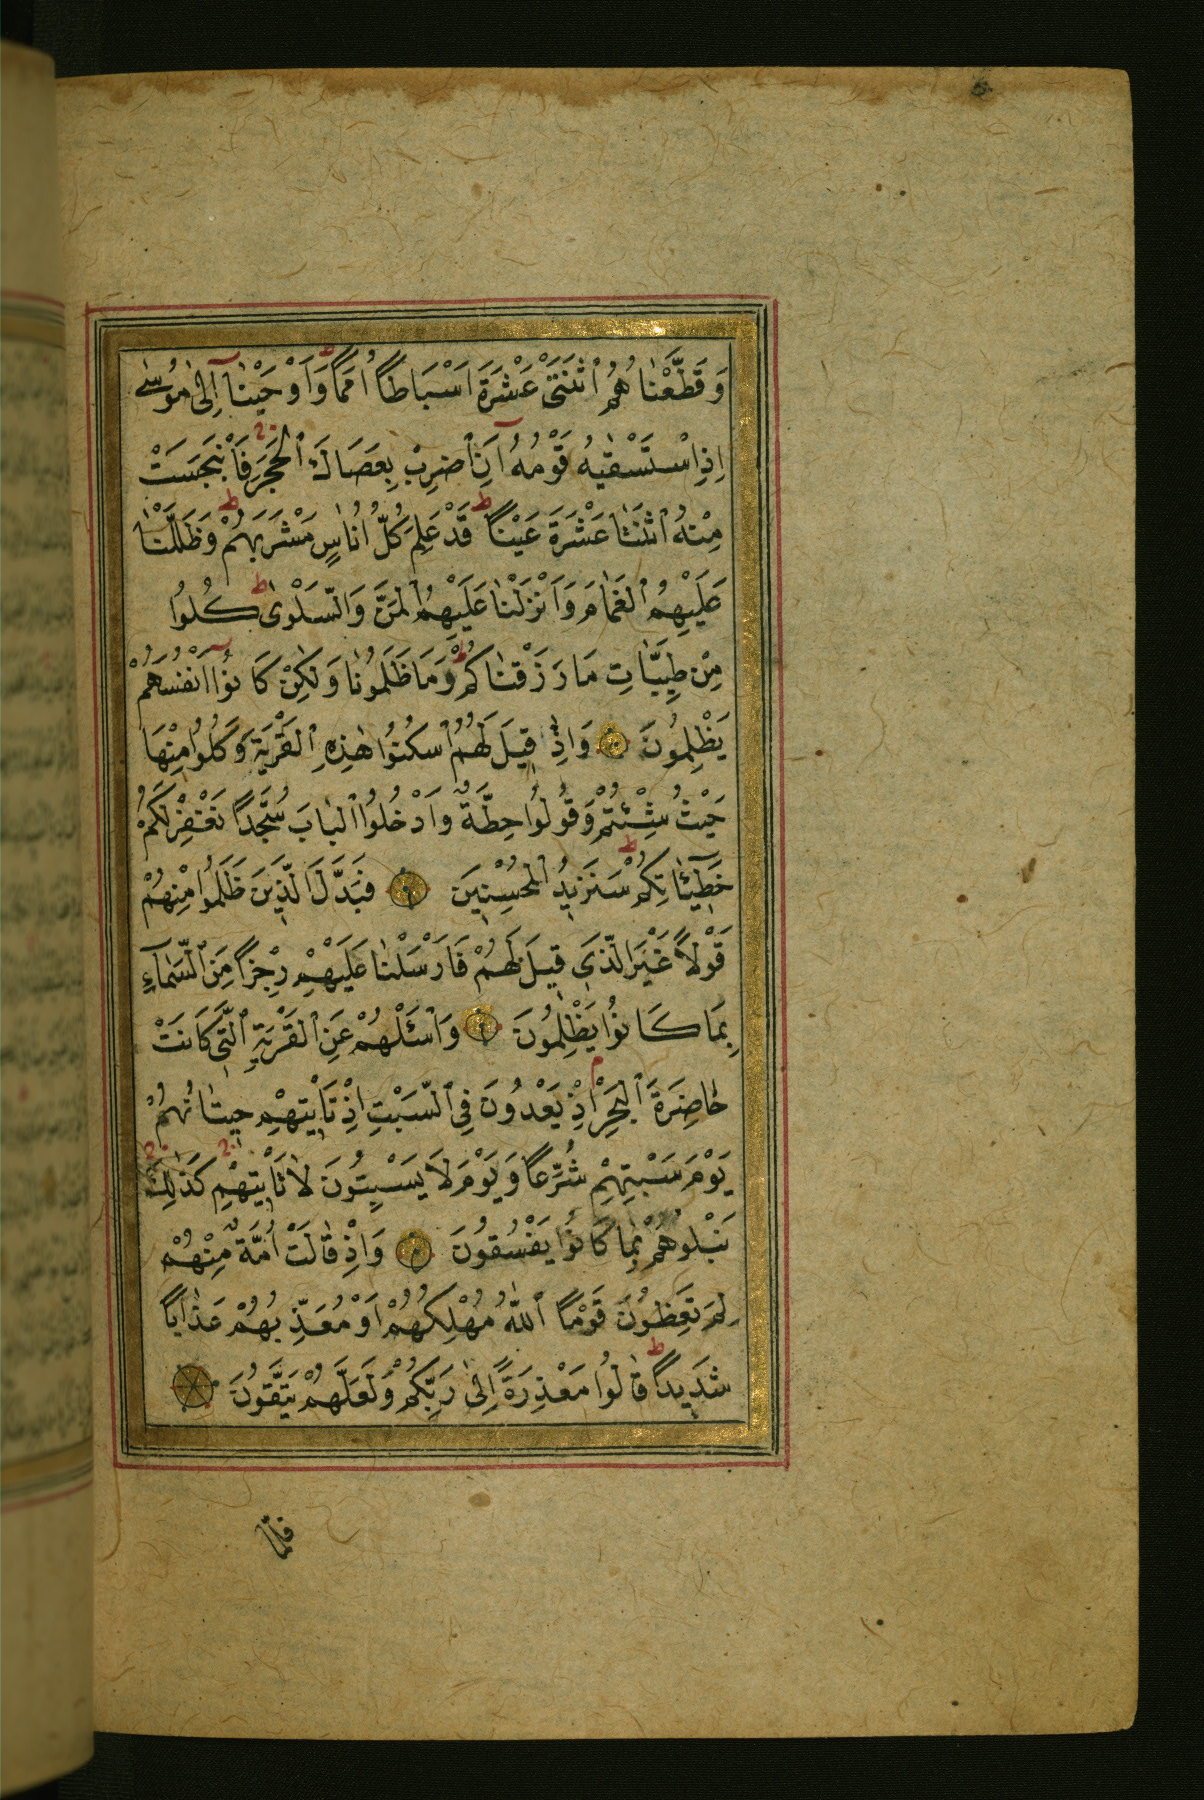 وَقَطَّعْنَاهُمُ اثْنَتَىْ عَشْرَةَ اَسْبَاطًا اُمَمًا وَاَوْحَيْنَا اِلٰى مُوسٰى
اِذِ اسْتَسْقٰيهُ قَوْمُهُ اَنِ اضْرِبْ بِعَصَاكَ الْحَجَرَ فَانْبَجَسَتْ
مِنْهُ اثْنَتَا عَشْرَةَ عَيْنًا قَدْ عَلِمَ كُلُّ اُنَاسٍ مَشْرَبَهُمْ وَظَلَّلْنَا
عَلَيْهِمُ الْغَمَامَ وَاَنْزَلْنَا عَلَيْهِمُ الْمَنَّ وَالسَّلْوٰى كُلُوا
مِنْ طَيِّبَاتِ مَا رَزَقْنَاكُمْ وَمَا ظَلَمُونَا وَلٰكِنْ كَانُوا اَنْفُسَهُمْ
يَظْلِمُونَ وَاِذْ قِيلَ لَهُمُ اسْكُنُوا هٰذِهِ الْقَرْيَةَ وَكُلُوا مِنْهَا
حَيْثُ شِئْتُمْ وَقُولُوا حِطَّةٌ وَادْخُلُوا الْبَابَ سُجَّدًا نَغْفِرْ لَكُمْ
خَطِيئَاتِكُمْ سَنَزِيدُ الْمُحْسِنِينَ فَبَدَّلَ الَّذِينَ ظَلَمُوا مِنْهُمْ
قَوْلًا غَيْرَ الَّذِى قِيلَ لَهُمْ فَاَرْسَلْنَا عَلَيْهِمْ رِجْزًا مِنَ السَّمَاءِ
بِمَا كَانُوا يَظْلِمُونَ وَاسْئَلْهُمْ عَنِ الْقَرْيَةِ الَّتِى كَانَتْ
حَاضِرَةَ الْبَحْرِ اِذْ يَعْدُونَ فِى السَّبْتِ اِذْ تَأْتِيهِمْ حِيتَانُهُمْ
يَوْمَ سَبْتِهِمْ شُرَّعًا وَيَوْمَ لَا يَسْبِتُونَ لَا تَأْتِيهِمْ كَذٰلِكَ
نَبْلُوهُمْ بِمَا كَانُوا يَفْسُقُونَ وَاِذْ قَالَتْ اُمَّةٌ مِنْهُمْ
لِمَ تَعِظُونَ قَوْمًا اللّٰهُ مُهْلِكُهُمْ اَوْ مُعَذِّبُهُمْ عَذَابًا
شَدِيدًا قَالُوا مَعْذِرَةً اِلٰى رَبِّكُمْ وَلَعَلَّهُمْ يَتَّقُونَ
فلما